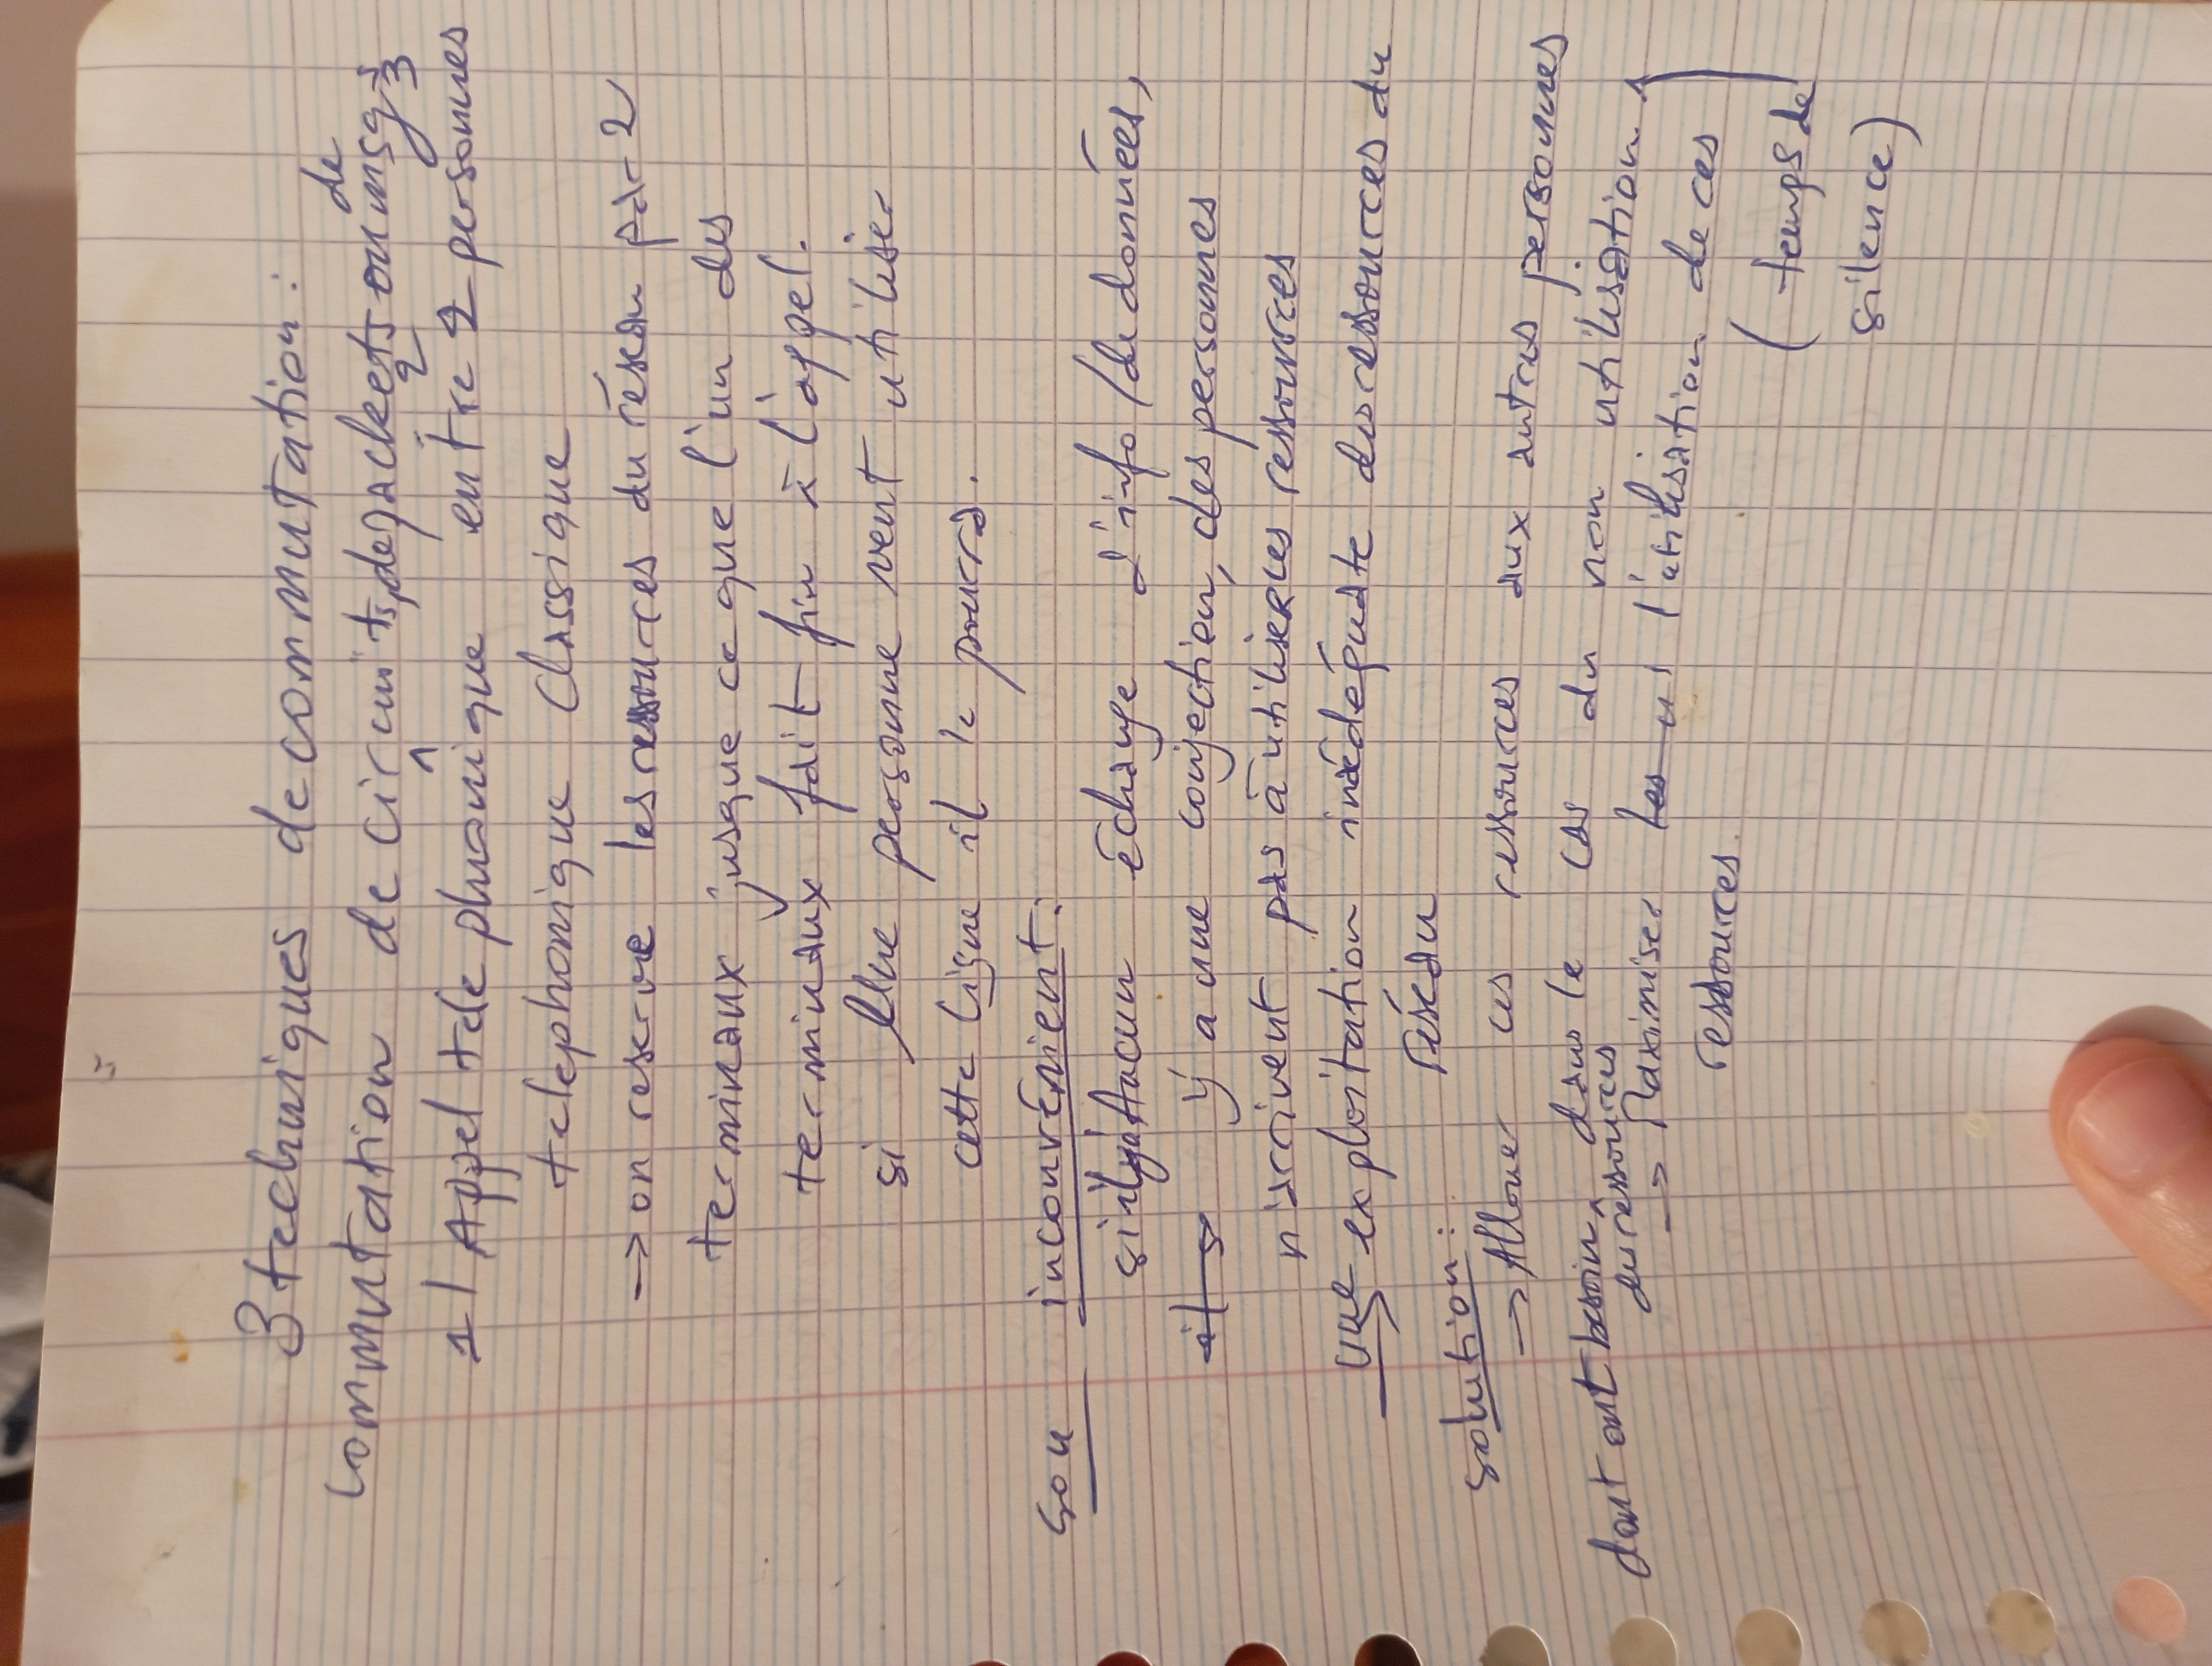 3 techniques de commutation :
commutation de circuits, de packets ou de msgs
1 2 3
1) Appel telephonique entre 2 personnes
telephonique classique
→ on reserve les ressources du réseau par 2
terminaux jusque ce que l'un des
terminaux fait fin à l'appel.
si Une personne veut utiliser
cette ligne il le pourra.
son inconvénient :
si il y a Aucun échange d'info / de données,
il s y a une conjection, des personnes
n'arrivent pas à utiliser les ressources
une → exploitation inadéquate des ressources du
réseau
solution :
→ Allouer ces ressources aux autres personnes
dont ont besoin, dans le cas du non utilisation
des ressources
→ Maximiser les l'utilisation de ces
ressources.
(temps de
silence)